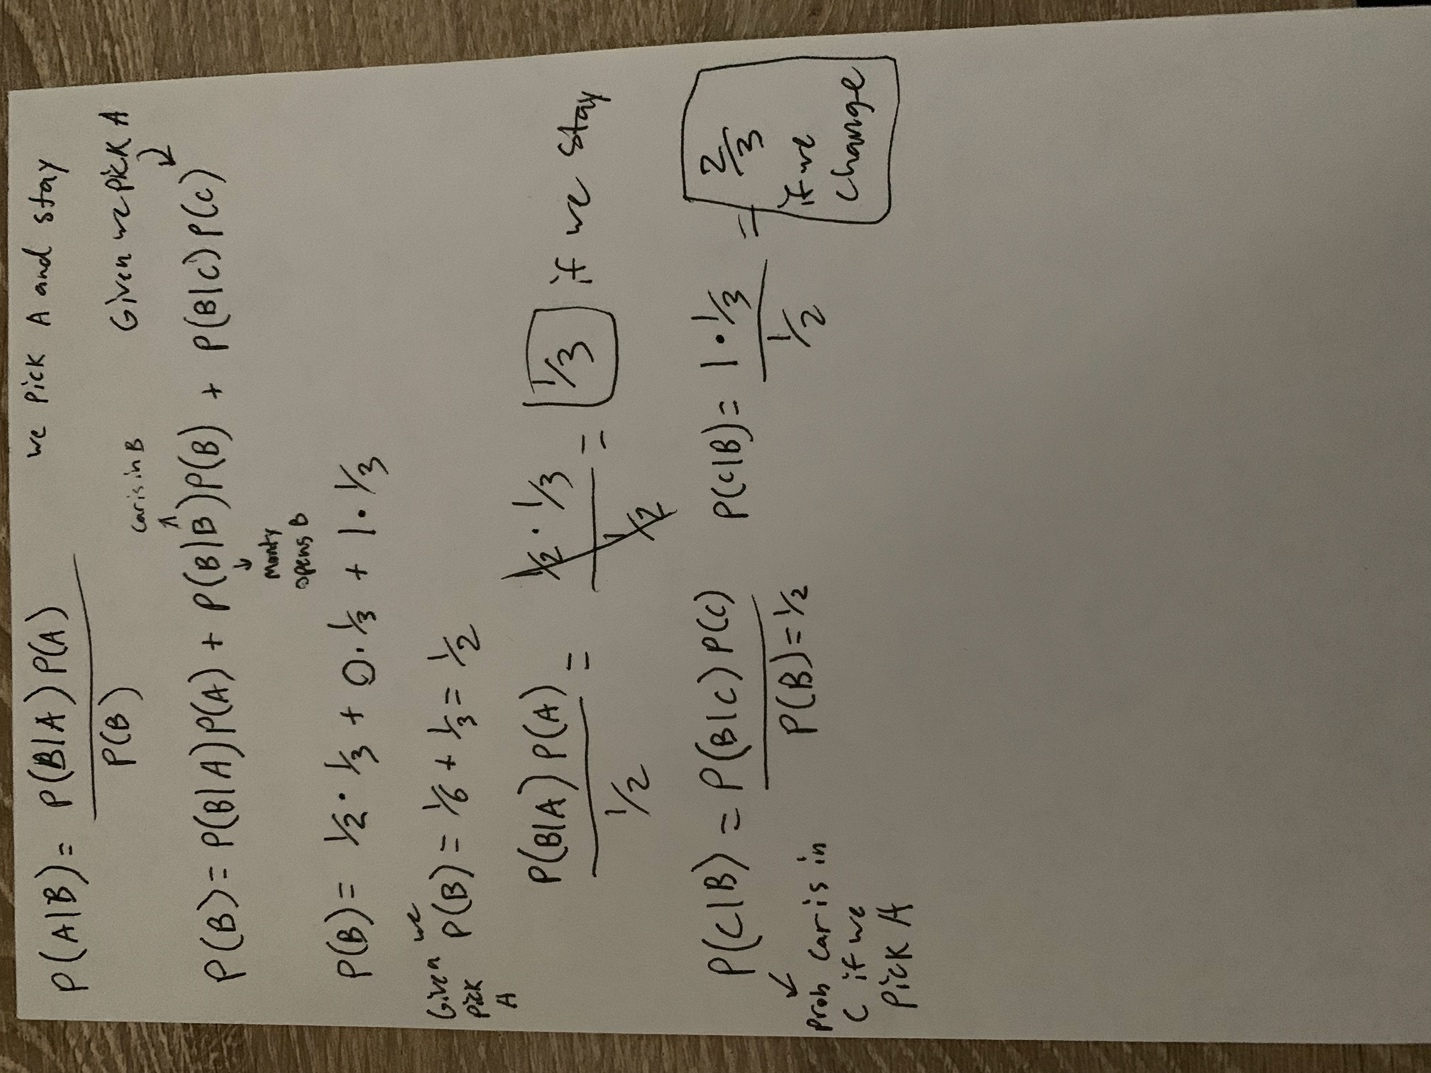 P(A|B) = P(B|A) P(A) / P(B)
we Pick A and stay
car is in B
Given we pick A
P(B) = P(B|A) P(A) + P(B|B) P(B) + P(B|C) P(C)
Monty
opens B
P(B) = 1/2 · 1/3 + 0 · 1/3 + 1 · 1/3
Given we
pick
A
P(B) = 1/6 + 1/3 = 1/2
P(B|A) P(A) / 1/2 = 1/2 · 1/3 / 1/2 = 1/3 if we stay
P(C|B) = P(B|C) P(C) / P(B) = 1/2
P(C|B) = 1 · 1/3 / 1/2 = 2/3
if we
change
prob car is in
C if we
Pick A